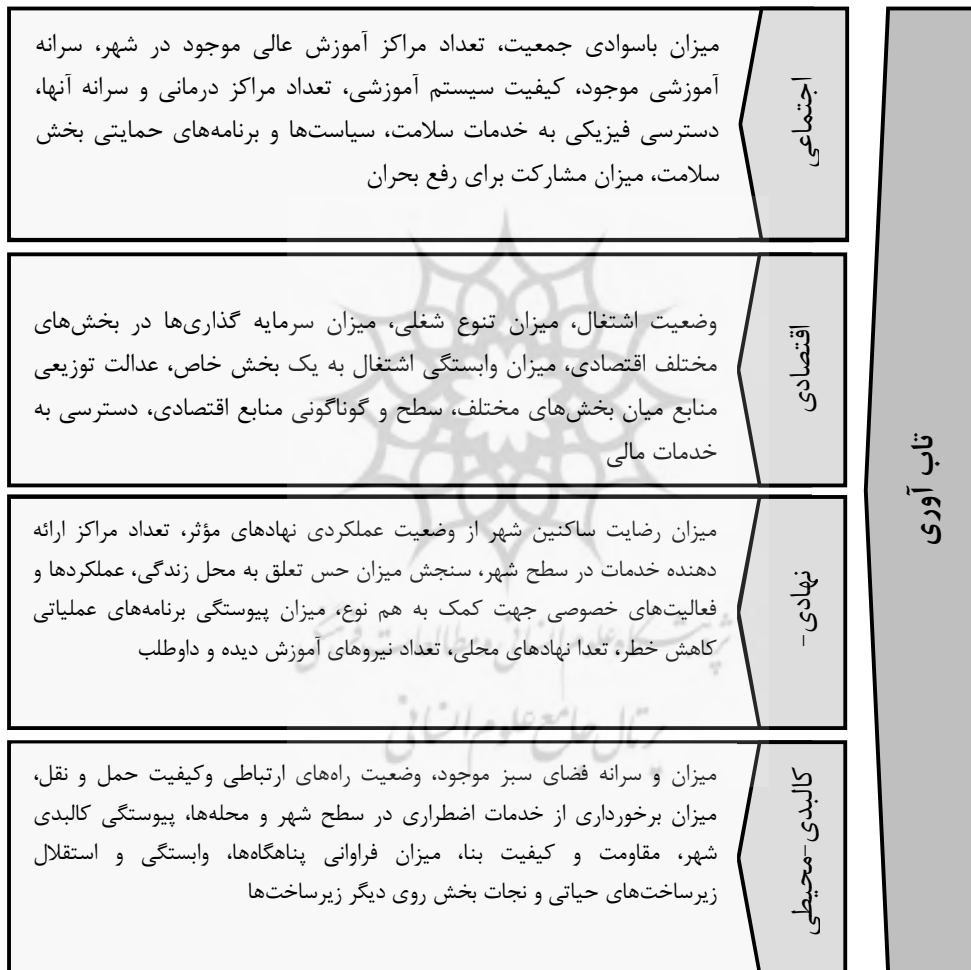 تاب آوری
اجتماعی
میزان باسوادی جمعیت، تعداد مراکز آموزش عالی موجود در شهر، سرانه
آموزشی موجود، کیفیت سیستم آموزشی، تعداد مراکز درمانی و سرانه آنها،
دسترسی فیزیکی به خدمات سلامت، سیاست‌ها و برنامه‌های حمایتی بخش
سلامت، میزان مشارکت برای رفع بحران
اقتصادی
وضعیت اشتغال، میزان تنوع شغلی، میزان سرمایه گذاری‌ها در بخش‌های
مختلف اقتصادی، میزان وابستگی اشتغال به یک بخش خاص، عدالت توزیعی
منابع میان بخش‌های مختلف، سطح و گوناگونی منابع اقتصادی، دسترسی به
خدمات مالی
نهادی-
میزان رضایت ساکنین شهر از وضعیت عملکردی نهادهای مؤثر، تعداد مراکز ارائه
دهنده خدمات در سطح شهر، سنجش میزان حس تعلق به محل زندگی، عملکردها و
فعالیت‌های خصوصی جهت کمک به هم نوع، میزان پیوستگی برنامه‌های عملیاتی
کاهش خطر، تعدا نهادهای محلی، تعداد نیروهای آموزش دیده و داوطلب
پژوهشگاه علوم انسانی و مطالعات فرهنگی
پرتال جامع علوم انسانی
کالبدی-محیطی
میزان و سرانه فضای سبز موجود، وضعیت راه‌های ارتباطی وکیفیت حمل و نقل،
میزان برخورداری از خدمات اضطراری در سطح شهر و محله‌ها، پیوستگی کالبدی
شهر، مقاومت و کیفیت بنا، میزان فراوانی پناهگاه‌ها، وابستگی و استقلال
زیرساخت‌های حیاتی و نجات بخش روی دیگر زیرساخت‌ها